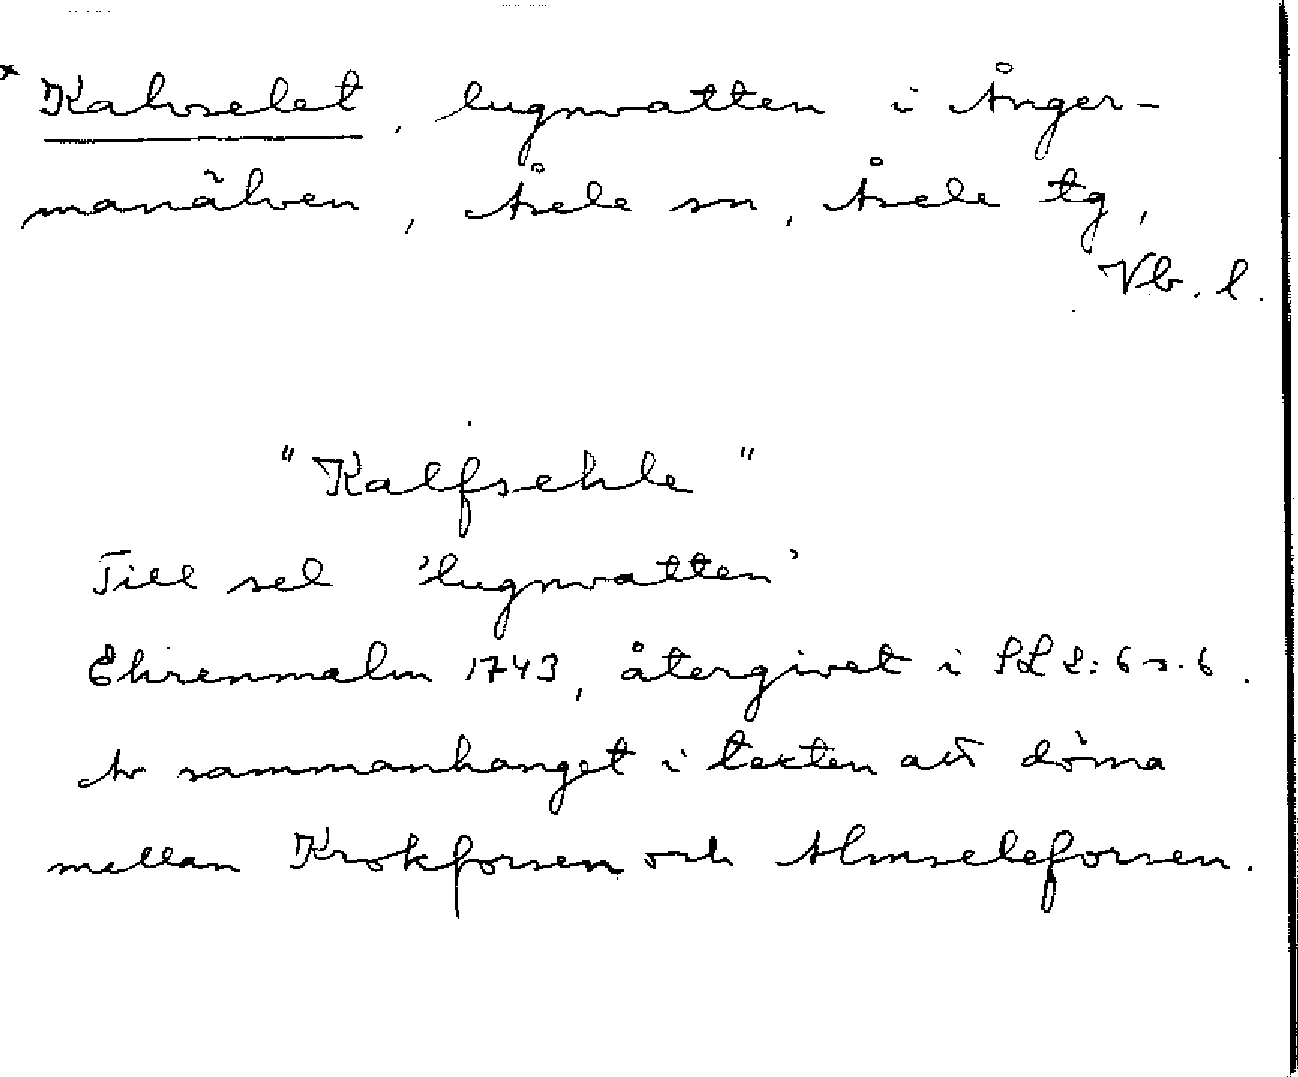 * Kalvselet, lugnvatten i Ånger-
manälven, Åsele sn, Åsele tg,
Vb. l.
"Kalfsehle"
Till sel 'lugnvatten'
Ehrenmalm 1743, återgivet i SL 2:6 s. 6.
Av sammanhanget i texten att döma
mellan Krokforsen och Almseleforsen.